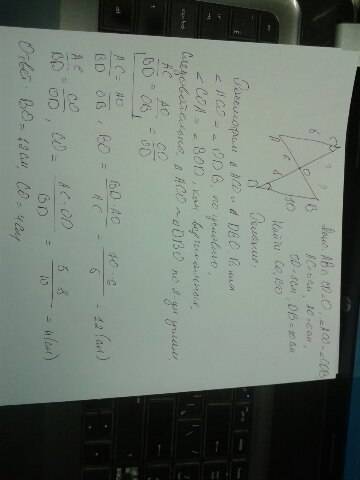 Дано: AB ∩ CD = O, ∠ACO = ∠ODB
AC = 5 см, AO = 6 см,
OD = 8 см, DB = 10 см
Найти: CO, BO
Решение:
Рассмотрим Δ ACO и Δ DBO. В них
∠ACO = ∠ODB, по условию,
∠COA = ∠BOD, как вертикальные.
Следовательно, Δ ACO ~ Δ DBO по 2-ум углам.
AC/BD = AO/OB = CO/OD
AC/BD = AO/OB, BO = BD·AO/AC = 10·6/5 = 12 (см)
AC/BD = CO/OD, CO = AC·OD/BD = 5·8/10 = 4 (см)
Ответ: BO = 12 см, CO = 4 см